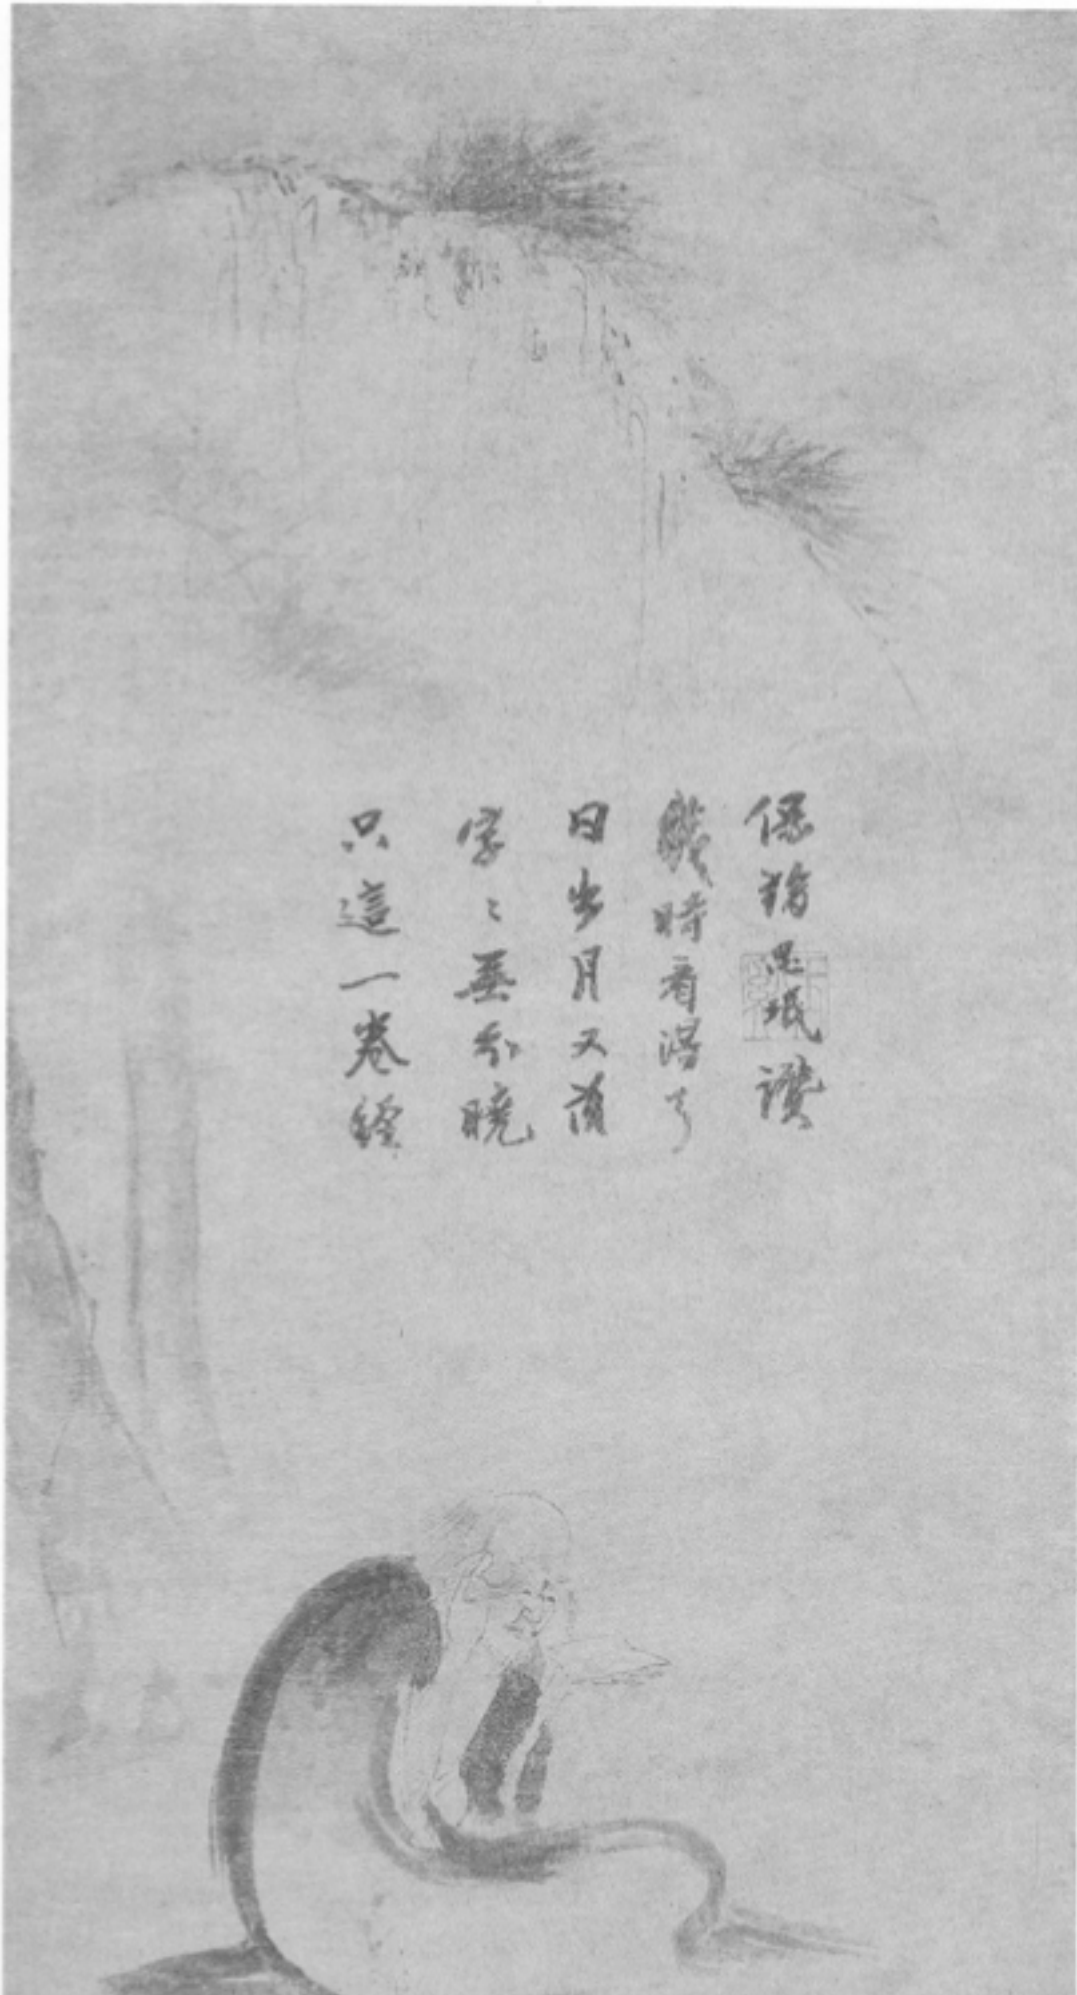 只這一卷經
字々無分曉
日出月又落
幾時看得了
保珉讚